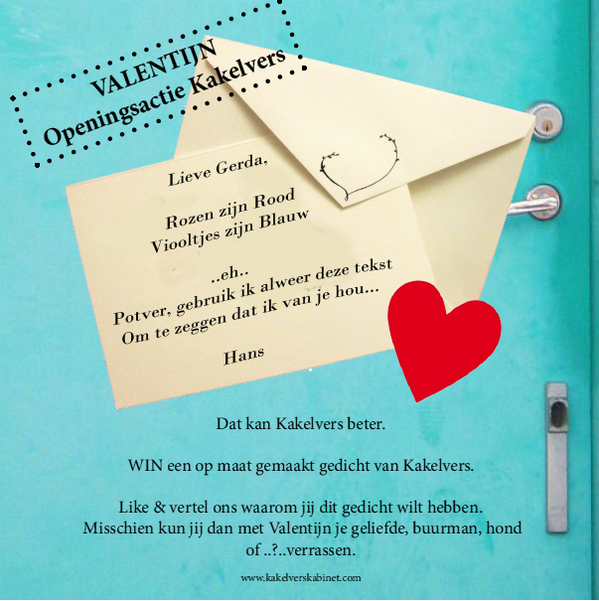 VALENTIJN
Openingsactie Kakelvers
Lieve Gerda,
Rozen zijn Rood
Viooltjes zijn Blauw
..eh..
Potver, gebruik ik alweer deze tekst
Om te zeggen dat ik van je hou...
Hans
Dat kan Kakelvers beter.
WIN een op maat gemaakt gedicht van Kakelvers.
Like & vertel ons waarom jij dit gedicht wilt hebben.
Misschien kun jij dan met Valentijn je geliefde, buurman, hond
of ..?..verrassen.
www.kakelverskabinet.com